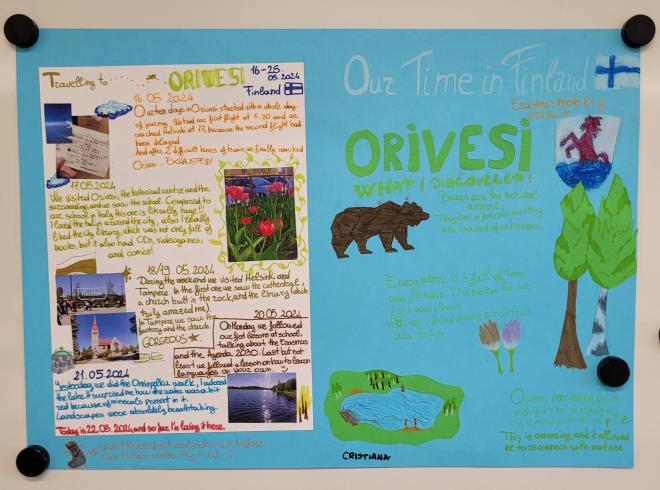 Travelling to
ORIVESI
16-25.
05.2024
Finland
16 05 2024
Our ten days in Orivesi started with a whole day
of journey. We had our first flight at 8.30 and we
reached Helsinki at 17, because the second flight had
been delayed.
And after 2 difficult hours of train we finally reached
EXHAUSTED!
17.05.2024
We visited Orivesi, the historical centre and the
surroundings, and we saw the school. Compared to
our school in Italy this one is literally huge!!!
I loved the tulips around the city, also I really
liked the city library, which was not only full of
books, but it also had CDs, videogames,
and comics!
18/19 05.2024
During the weekend we visited Helsinki, and
Tampere. In the first one we saw the cathedral,
a church built in the rock, and the library which
truly amazed me).
In Tampere we saw the
factory and the church.
GORGEOUS
20.05.2024
On Monday we followed
our first lessons at school,
talking about the Erasmus
and the Agenda 2030. Last but not
least we followed a lesson on how to learn
languages on your own.
21.05.2024
Yesterday we did the walk, I adored
the lake. It surprised me how the water was a bit
red because of minerals present in it.
Landscapes were absolutely breathtaking.
Today is 22.05.2024, and so far I'm loving it here.
Our Time in Finland
Erasmus mobility
project
ORIVESI
WHAT I DISCOVERED!
Bears are the national
animal.
They live in forests, but they
are scared of
Everywhere it's full of trees
and flowers. This makes the air
fresh and clean.
Orivesi has many
This is amazing, and it allowed
me to reconnect with nature
CRISTIANA